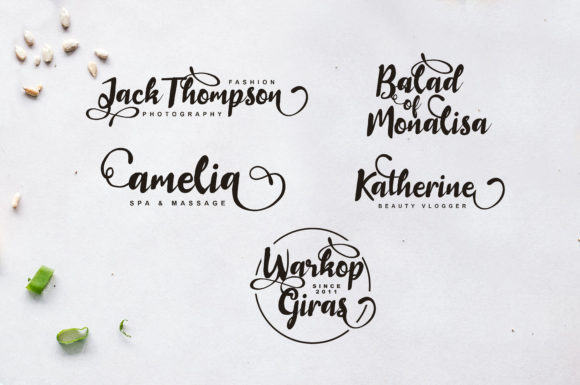 FASHION
Jack Thompson
PHOTOGRAPHY
Balad
of
Monalisa
Camelia
SPA & MASSAGE
Katherine
BEAUTY VLOGGER
Warkop
SINCE
2011
Giras